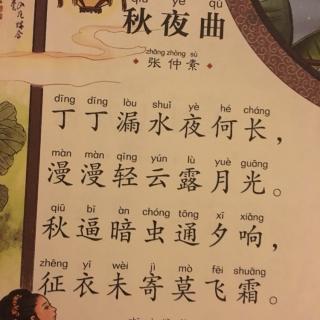 qiū yè qǔ
秋夜曲
zhāng zhòng sù
张仲素
dīng dīng lòu shuǐ yè hé cháng
丁丁漏水夜何长，
màn màn qīng yún lù yuè guāng
漫漫轻云露月光。
qiū bī àn chóng tōng xī xiǎng
秋逼暗虫通夕响，
zhēng yī wèi jì mò fēi shuāng
征衣未寄莫飞霜。